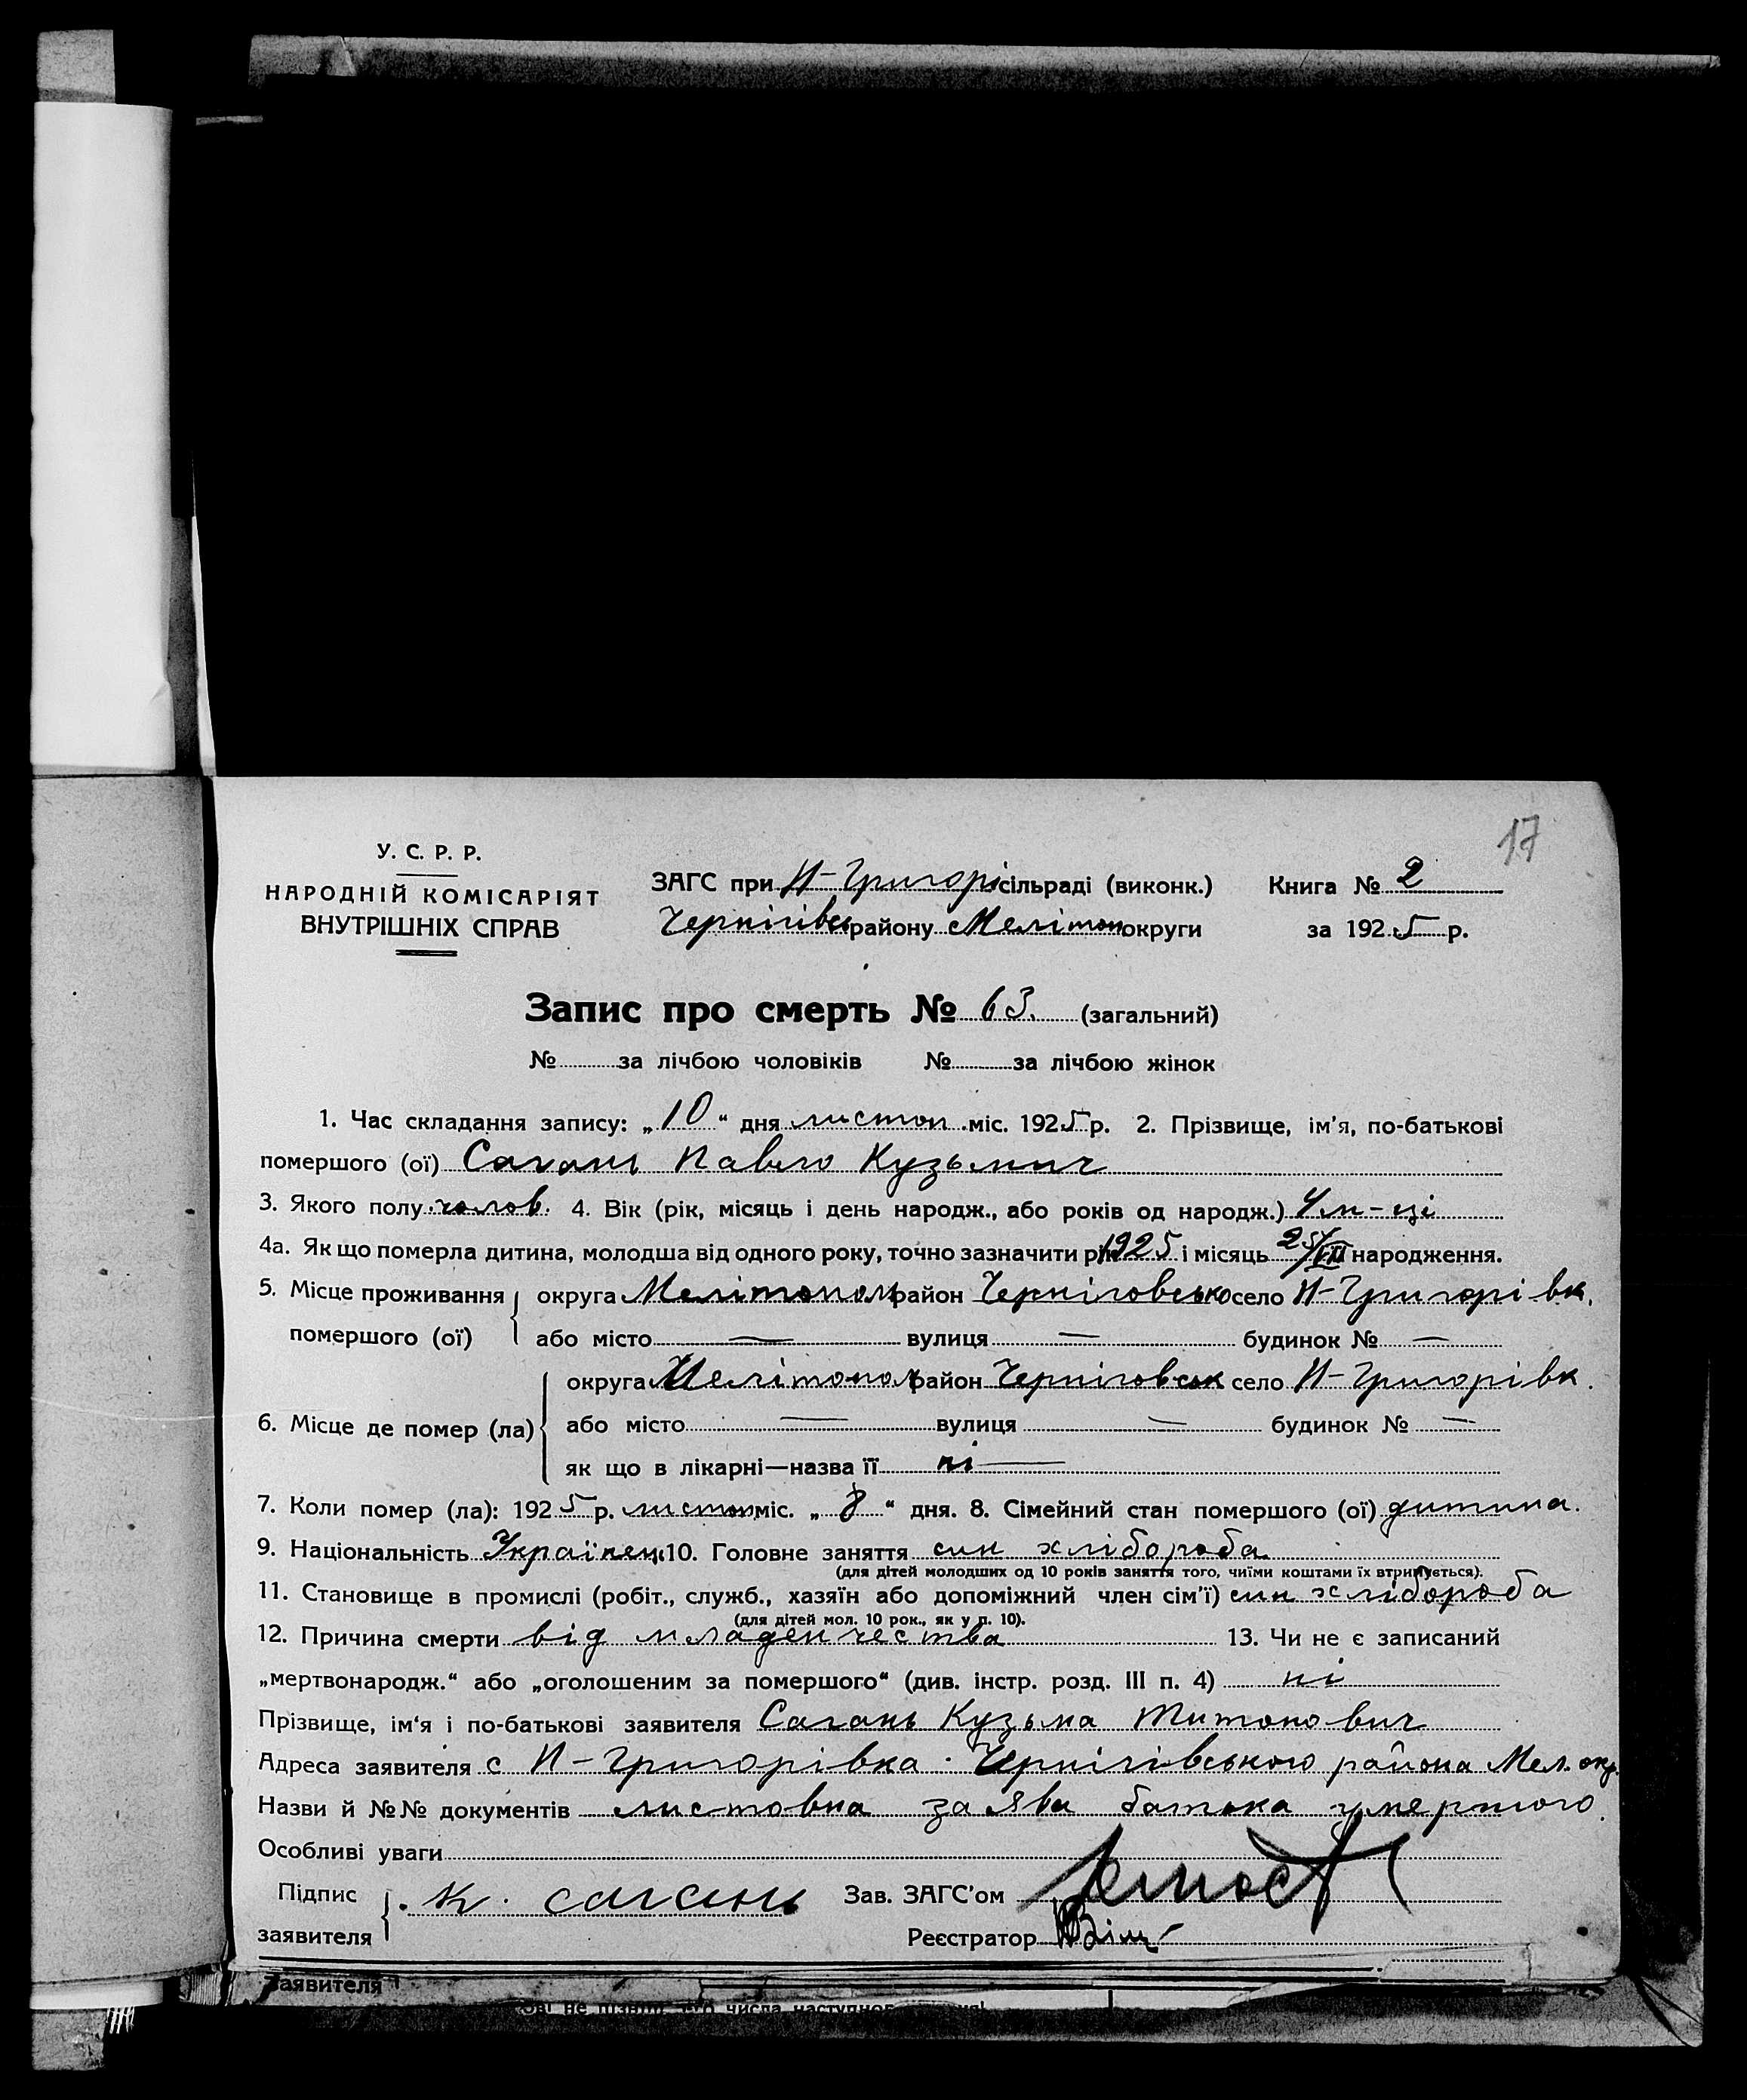 17
У. С. Р. Р.
НАРОДНІЙ КОМІСАРІЯТ
ВНУТРІШНІХ СПРАВ
ЗАГС при Н-Григорі сільраді (виконк.) Книга № 2
Чернігівсь району Мелітоп округи за 1925 р.
Запис про смерть № 63. (загальний)
№ за лічбою чоловіків № за лічбою жінок
1. Час складання запису: „10“ дня листоп. міс. 1925 р. 2. Прізвище, ім'я, по-батькові
помершого (ої) Сагань Павло Кузьмич
3. Якого полу чолов. 4. Вік (рік, місяць і день народж., або років од народж.) 4 м-ці
4а. Як що померла дитина, молодша від одного року, точно зазначити рік 1925 і місяць 25/VII народження.
5. Місце проживання помершого (ої) округа Мелітопол район Черніговсько село Н-Григорівк.
або місто — вулиця — будинок № —
6. Місце де помер (ла) округа Мелітопол район Черніговськ село Н-Григорівк.
або місто — вулиця — будинок № —
як що в лікарні—назва її ні —
7. Коли помер (ла): 1925 р. листоп міс. „8“ дня. 8. Сімейний стан помершого (ої) дитина.
9. Національність Українец 10. Головне заняття син хлібороба
(для дітей молодших од 10 років заняття того, чиїми коштами їх втримується).
11. Становище в промислі (робіт., служб., хазяїн або допоміжний член сім'ї) син хлібороба
(для дітей мол. 10 рок., як у п. 10).
12. Причина смерти від младенчества 13. Чи не є записаний
„мертвонародж.“ або „оголошеним за помершого“ (див. інстр. розд. III п. 4) ні
Прізвище, ім'я і по-батькові заявителя Сагань Кузьма Титонович
Адреса заявителя с Н-Григорівка. Чернігівського района Мел. окр.
Назви й №№ документів листовна заява батька умершого.
Особливі уваги
Підпис заявителя К. сагань Зав. ЗАГС'ом
Реєстратор
Заявителя